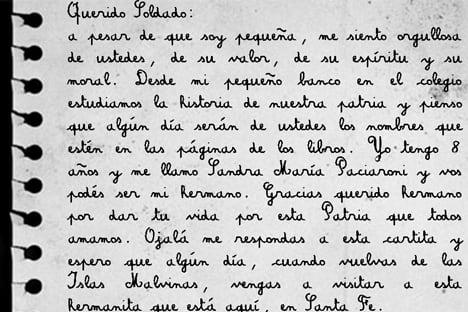 Querido Soldado:
a pesar de que soy pequeña, me siento orgullosa
de ustedes, de su valor, de su espíritu y su
moral. Desde mi pequeño banco en el colegio
estudiamos la historia de nuestra patria y pienso
que algún día serán de ustedes los nombres que
estén en las páginas de los libros. Yo tengo 8
años y me llamo Sandra María Paciaroni y vos
podés ser mi hermano. Gracias querido hermano
por dar tu vida por esta Patria que todos
amamos. Ojalá me respondas a esta cartita y
espero que algún día, cuando vuelvas de las
Islas Malvinas, vengas a visitar a esta
hermanita que está aquí, en Santa Fe.